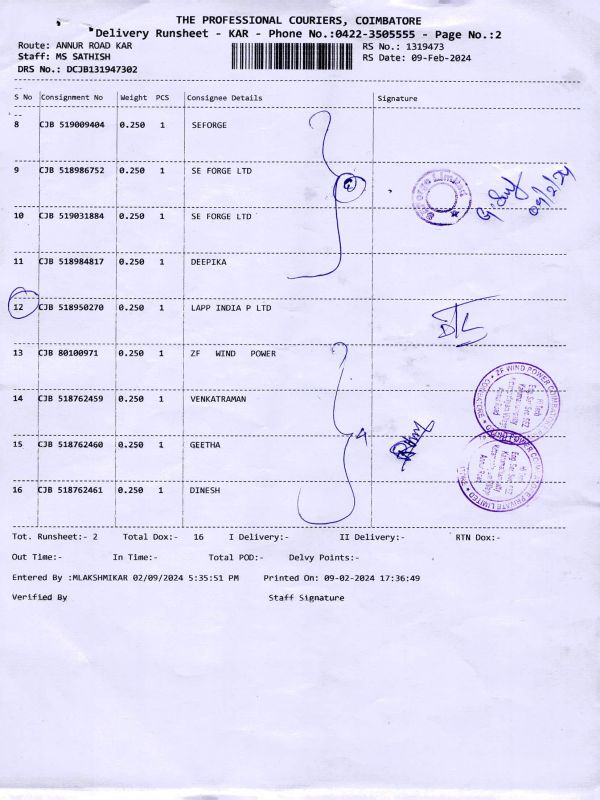 THE PROFESSIONAL COURIERS, COIMBATORE
Delivery Runsheet - KAR - Phone No.:0422-3505555 - Page No.:2
Route: ANNUR ROAD KAR
RS No.: 1319473
Staff: MS SATHISH
RS Date: 09-Feb-2024
DRS No.: DCJB131947302
S No Consignment No Weight PCS Consignee Details Signature
8 CJB 519009404 0.250 1 SEFORGE
9 CJB 518986752 0.250 1 SE FORGE LTD
3
09/2/24
10 CJB 519031884 0.250 1 SE FORGE LTD
11 CJB 518984817 0.250 1 DEEPIKA
12 CJB 518950270 0.250 1 LAPP INDIA P LTD
13 CJB 80100971 0.250 1 ZF WIND POWER
14 CJB 518762459 0.250 1 VENKATRAMAN
4
15 CJB 518762460 0.250 1 GEETHA
16 CJB 518762461 0.250 1 DINESH
ZF WIND POWER COIMBATORE
Tot. Runsheet:- 2 Total Dox:- 16 I Delivery:- II Delivery:- RTN Dox:-
Out Time:- In Time:- Total POD:- Delvy Points:-
Entered By :MLAKSHMIKAR 02/09/2024 5:35:51 PM Printed On: 09-02-2024 17:36:49
Verified By Staff Signature